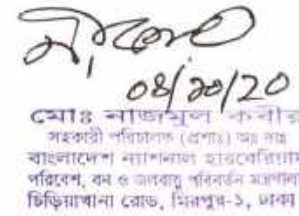 08/10/20
মোঃ নাজমুল কবীর
সহকারী পরিচালক (প্রশাঃ)
বাংলাদেশ ন্যাশনাল হারবেরিয়াম
পরিবেশ, বন ও জলবায়ু পরিবর্তন মন্ত্রণালয়
চিড়িয়াখানা রোড, মিরপুর-১, ঢাকা